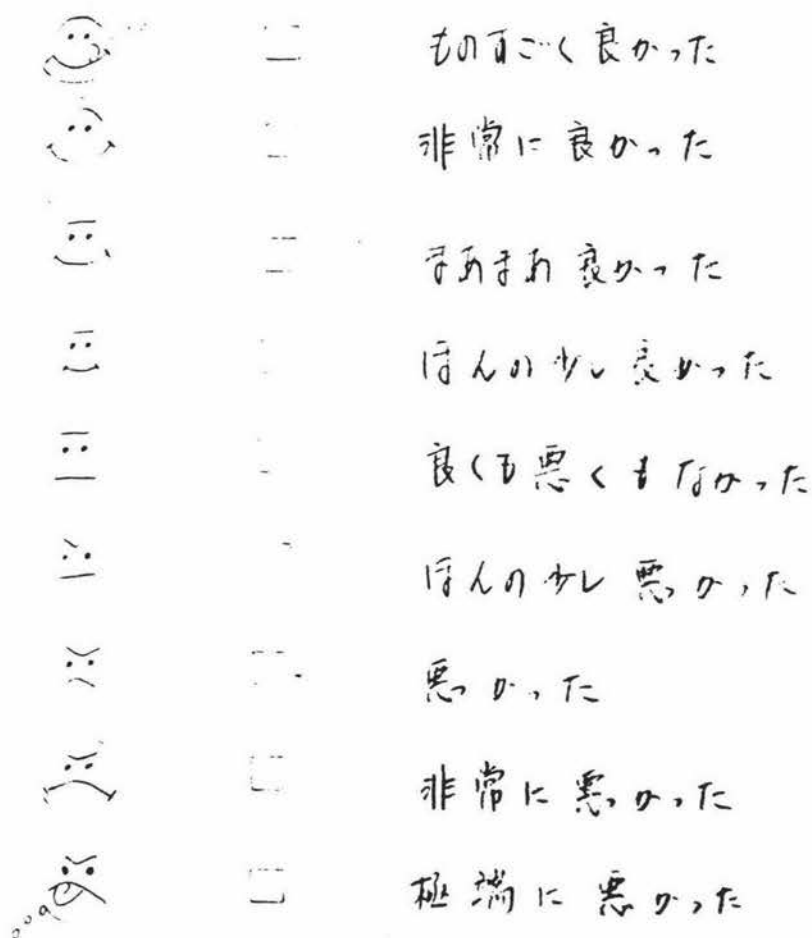 ものすごく良かった
非常に良かった
まあまあ良かった
ほんの少し良かった
良くも悪くもなかった
ほんの少し悪かった
悪かった
非常に悪かった
極端に悪かった